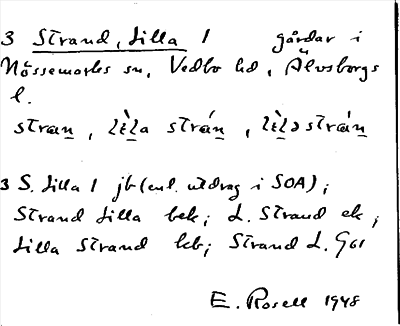 3 Strand, Lilla 1 gårdar i
Nössemarks sn, Vedbo hd, Älvsborgs
l.
stran, lèla strán, lèlə strán
3 S. Lilla 1 jb (enl. utdrag i SOA);
Strand Lilla bek; L. Strand ek;
Lilla Strand kb; Strand L. G61
E. Rosell 1948